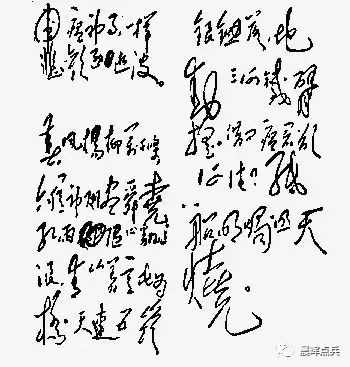 问瘟神事一样
悲歡逐逝波。
春风杨柳万千条
六億神州尽舜堯
红雨随心翻作
浪,青山着意化为
桥 天連五岭
银锄落,地
动三河鐵臂
摇。借问瘟君欲
何往?纸
船明烛照天
燒。
晨晖点兵